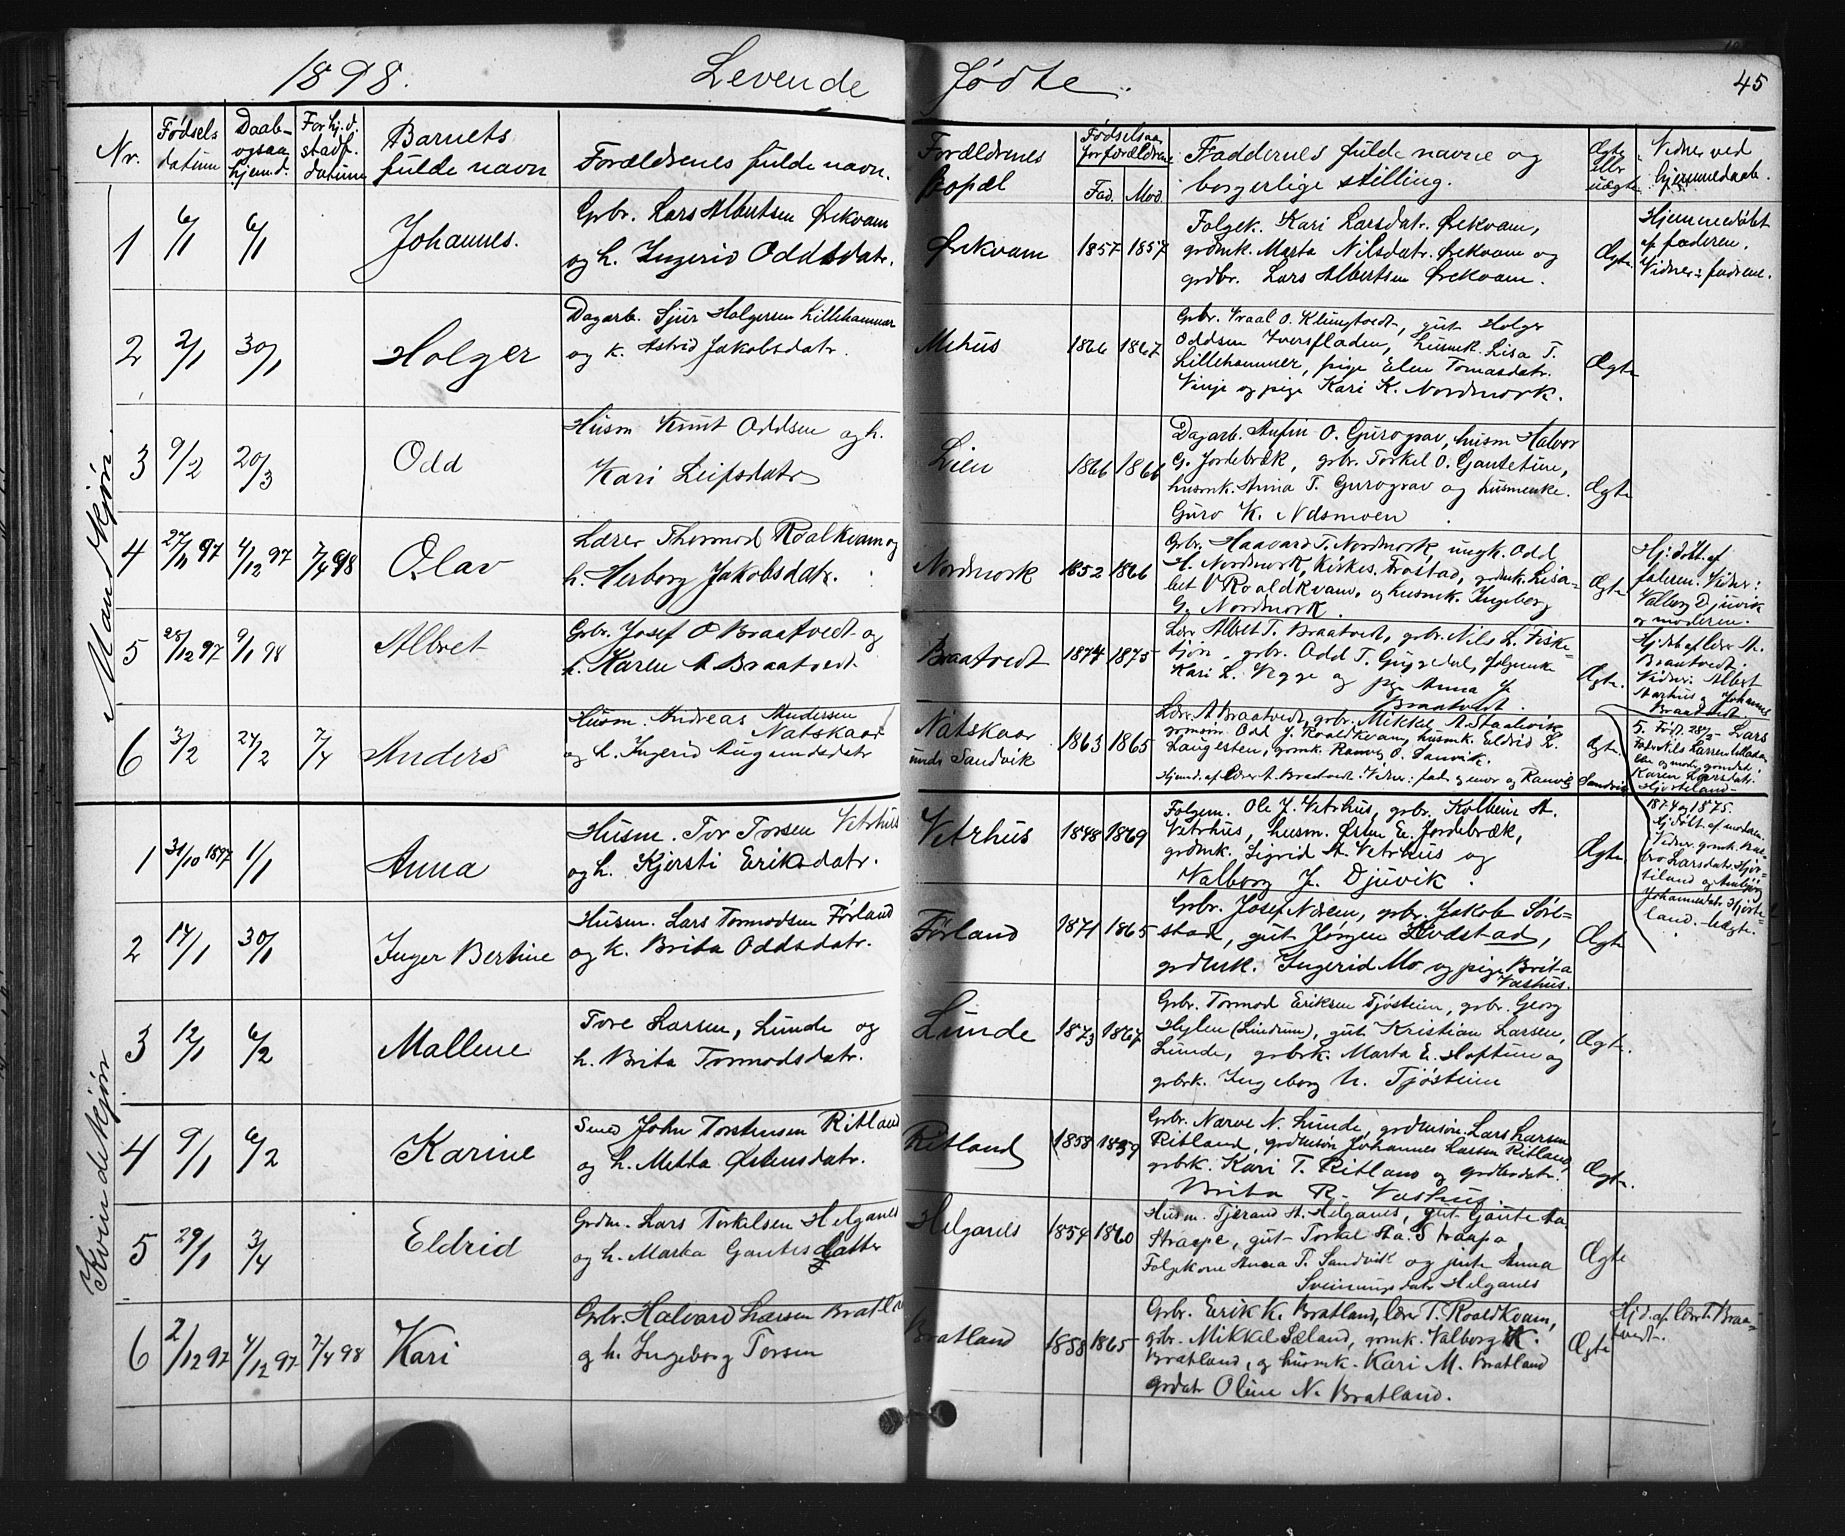 1898. Levende Fødte. 45
Nr. Fødsels datum Daab- ogsaa hjemd. For hj.d. stadf. datum Barnets fulde navn Forældrenes fulde navn. Forældrenes Bopæl Fødselsaar for forældrene Fad. Mod. Faddernes fulde navne og borgerlige stilling. Ægte eller uægte Vidner ved hjemmedaab.
Mandkjøn.
1 6/1 6/1 Johannes.
Grbr. Lars Albertsen Ørekvam
og h. Ingerid Oddsdatr.
Ørekvam 1857 1857
Folgek. Kari Larsdatr. Ørekvam,
grdmk. Marta Nilsdatr. Ørekvam og
grdbr. Lars Albertsen Ørekvam.
Ægte.
Hjemmedøbt
af faderen.
Vidner:
2 2/1 30/1 Holger
Dagarb. Sjur Holgersen Lillehammer
og k. Astrid Jakobsdatr.
Mehus 1866 1867
Grbr. Vraal O. Klungtvedt, gut Holger
Oddsen Iversfladen, husmk. Lisa T.
Lillehammer, pige Elen Tomasdatr.
Vinje og pige Kari K. Nordmork.
Ægte
3 9/2 20/3 Odd
Husm Knut Oddsen og h.
Kari Leifsdatr
Lien 1866 1866
Dagarb. O. Gurograv, husm Halvor
G. Jordebræk, grbr. Torkel O. Gautetun,
husmk. Anna T. Gurograv og husmenke.
Guro K. Nesmoen
Ægte
4 27/11 97 4/12 97 7/4 98 Olav
Lærer Thormod Roalkvam og
h. Herborg Jakobsdatr.
Nordmork 1852 1866
Gbr. Haavard T. Nordmork, ungk. Odd
H. Nordmork, Kirkes. Frostad, grdmk. Lisa-
bet V Roaldkvam, og husmk. Ingeborg
G. Nordmork.
Ægte
Hj. døbt. af
faderen. Vidner:
Valborg Djuvik
og moderen.
5 28/12 97 9/1 98 Albret
Gbr. Josef O Braatvedt og
h. Karen A Braatvedt
Braatvedt 1874 1875
Lær Albret T. Braatvedt, grbr. Nils L. Fiske-
tjøn, grbr. Odd T. Guggedal, folgenke
Kari L. Vegge og pige Anna J.
Braatvedt.
Ægte.
Hj. dbt af lær A.
Braatvedt.
Vidner: Albert
Aarhus og Johannes
Braatvedt
6 3/2 24/2 7/4 Anders
Husm. Andreas Andersen
Natskaar
og h. Ingerid Augundsdatr
Natskaar
under Sandvik 1863 1865
Lær. A Braatvedt, grbr. Mikkel A. Staalevik
Odd J. Roaldkvam, husmk. Eldrid L.
Langesten, grmk. Ranveig O. Sanvik.
Hjemd. af Lærer A. Braatvedt. Vidner: far og mor og Ranvig Sandvig
Ægte.
5. Født 28/2 - Lars
Fader Nils Larsen
Karen Larsdatr.
Hjorteland
1874 og 1875.
Hj. døbt af moderen.
Vidner grmk.
Larsdatr. Hjor-
teland og
Johannesdatr. Hjorte-
land. - Uægte.
Kvindekjøn
1 31/10 1897 1/1 Anna
Husm. Tor Torsen Vetrhus
og h. Kjersti Eriksdatr.
Vetrhus 1848 1869
Folgem. Ole J. Vetrhus, grbr. Kolbein A.
Vetrhus, husm. Østen E. Jordebræk,
grdmk. Sigrid A. Vetrhus og
Valborg J. Djuvik.
Ægte.
2 14/1 30/1 Inger Bertine
Husm. Lars Tormodsen Førland
og k. Brita Oddsdatr.
Førland 1871 1865
Grbr. Josef Noreim, grbr. Jakob Søre-
stad, gut Jørgen Hodstad,
grdmk. Ingerid Mo og pige Brita
Vashus.
Ægte
3 12/1 6/2 Mallene
Tore Larsen, Lunde og
h. Brita Tormodsdatr.
Lunde 1873 1867
Grbr. Tormod Eriksen Tjøstein, grbr. Georg
Hylen (Lindrum), gut Kristian Larsen,
Lunde, grbrk. Marta E. Hoftun og
grbrk. Ingeborg N. Tjøstein
Ægte.
4 9/1 6/2 Karine
Smed John Torstensen Ritland
og h. Metta Østensdatr.
Ritland 1858 1859
Grbr. Narve N. Lunde, grdmsøn Lars Larsen
Ritland, grdmsøn Johannes Larsen Ritland
grbrk. Kari T. Ritland og grdbrdatr.
Brita R. Vashus.
Ægte.
5 29/1 3/4 Eldrid
Grdm. Lars Torkelsen Helganes
og h. Marta Gautesdatter
Helganes 1854 1860
Husm. Tjerand H. Helganes, gut Gaute
Straape, gut Torkel Straapa,
Folgekone Anna P. Sandvik og jente Anna
Sveinungsdatr Helganes
Ægte
6 2/12 97 4/12 97 7/4 98 Kari
Grbr. Halvard Larsen Bratland
og h. Ingeborg Torsen
Bratland 1858 1865
Grbr. Erik K. Bratland, lær T. Roaldkvam,
gbr. Mikkel Sæland, grmk. Valborg K.
Bratland, og husmk. Kari M. Bratland
grdatr Oline N. Bratland.
Ægte
Hjd. af Lær. T. Braa-
tvedt.